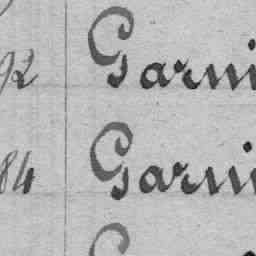 92 Garni
84 Garni